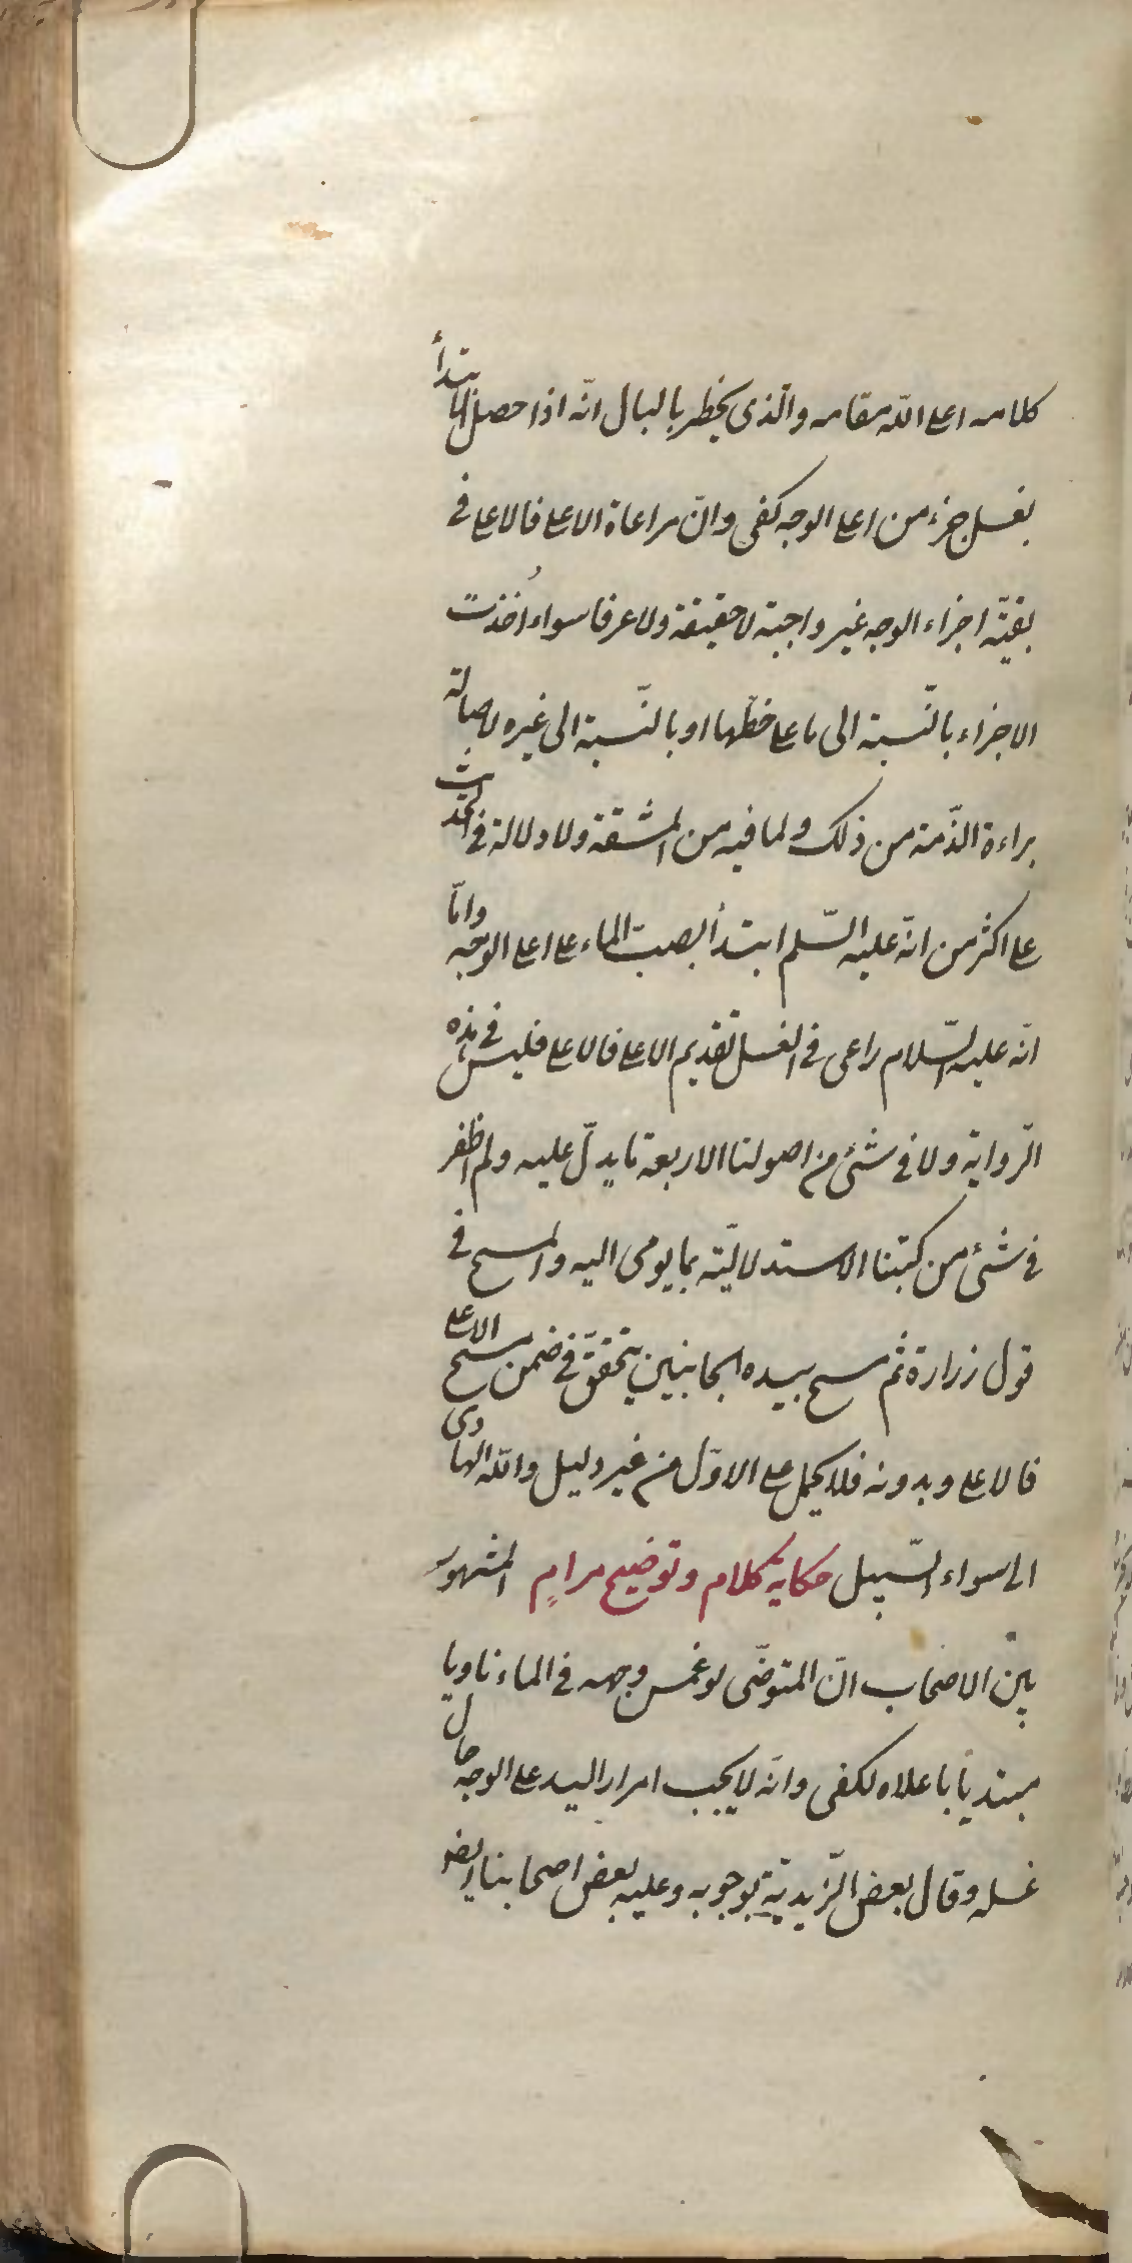 كلامه اعلى اللّه مقامه والّذى يخطر بالبال انّه اذا حصل الابتدأ
بغسل جزء من اعلى الوجه كفى وانّ مراعاة الاعلى فالاعلى فى
بقيّة اجزاء الوجه غير واجبة لا حقيقة ولا عرفا سواء اُخذت
الاجزاء بالنّسبة الى ما على خطّها او بالنّسبة الى غيره لاصالة
براءة الذّمة من ذلك ولما فيه من المشقة ولا دلالة فى الحديث
على اكثر من انّه عليه السّلم ابتدأ بصبّ الماء على اعلى الوجه وامّا
انّه عليه السّلام راعى فى الغسل تقديم الاعلى فالاعلى فليس فى هذه
الرّواية ولا فى شئ من اصولنا الاربعة ما يدلّ عليه ولم اظفر
فى شئ من كتبنا الاستدلاليّة بما يومى اليه والمسح فى
قول زرارة ثم مسح بيده الجانبين يتحقّق فى ضمن مسح الاعلى
فالاعلى وبدونه فلا يحمل على الاوّل من غير دليل واللّه الهادى
الى سواء السّبيل حكاية كلام وتوضيح مرامٍ المشهور
بين الاصحاب انّ المتوضّى لو غمس وجهه فى الماء ناويا
مبتديًا باعلاه لكفى وانّه لا يجب امرار اليد على الوجه حال
غسله وقال بعض الزّيديّة بوجوبه وعليه بعض اصحابنا ايضا